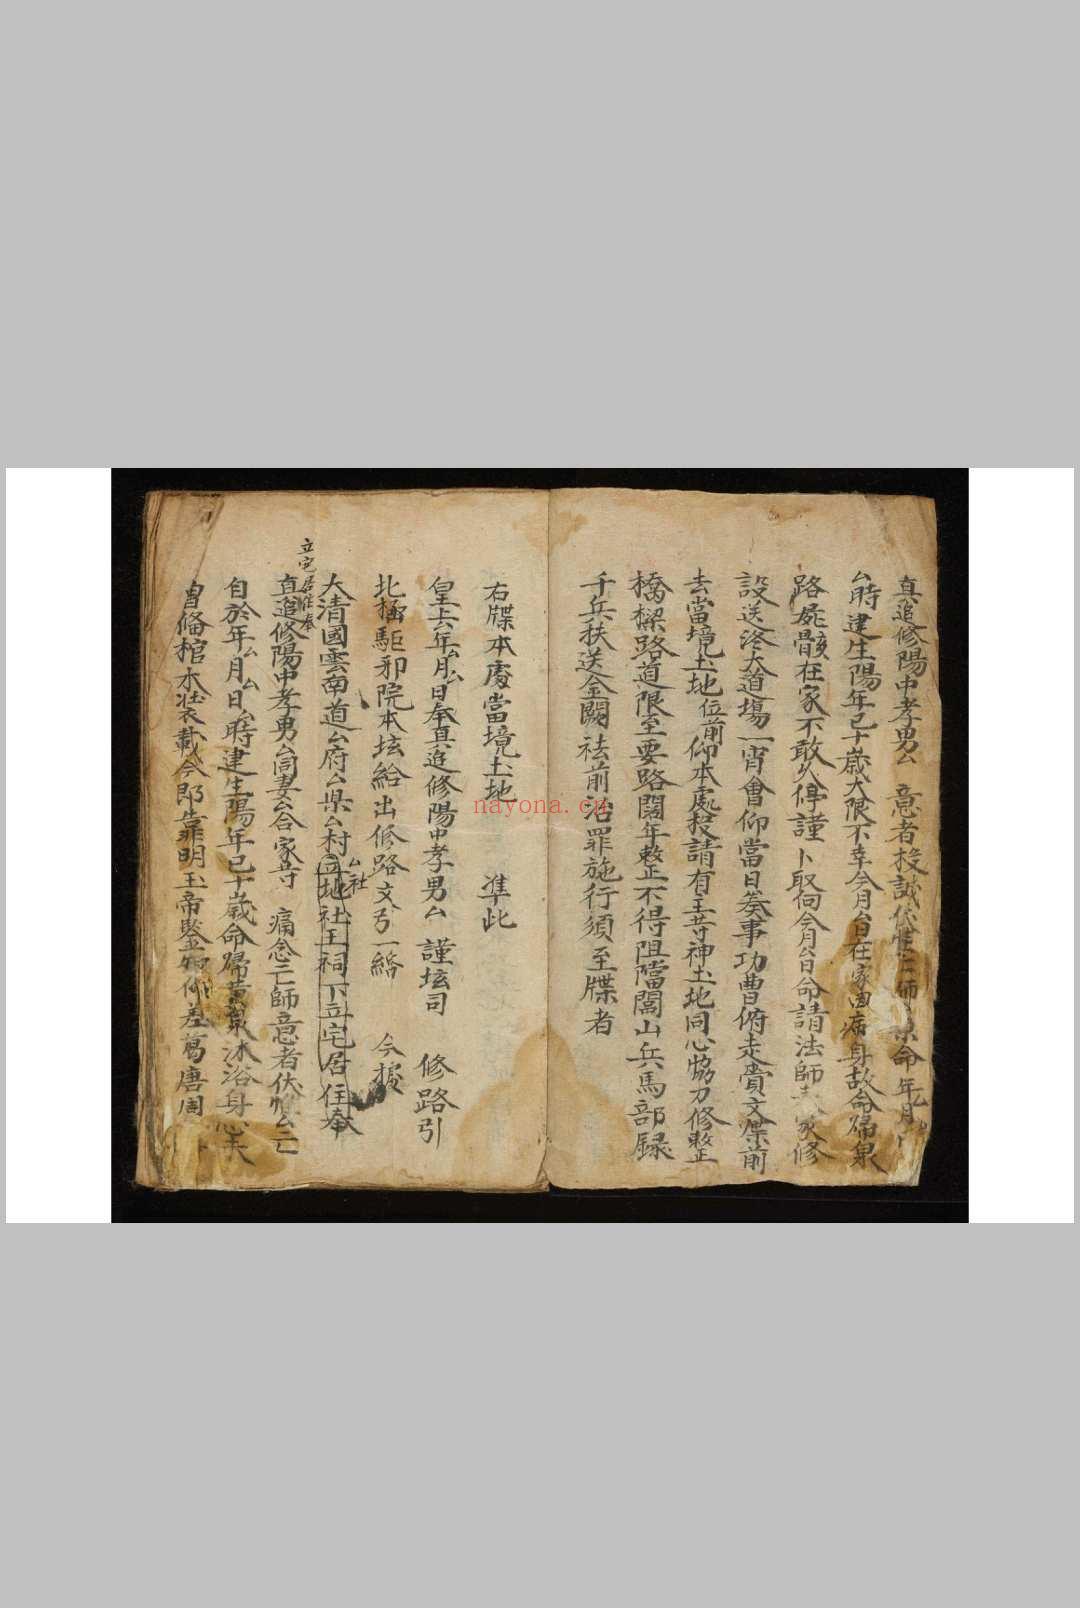 真追修陽中孝男厶 意者投誠伏惟亡師 命年月
厶時建生陽年已十歲大限不幸今月厶日在家因病身故命歸泉
路屍骸在家不敢久停謹卜取向今月厶日命請法師 家修
設送终大道場一宵會仰當日奏事功曹俯走賫文牒前
去當境土地位前仰本處投請有主等神土地同心協力修整
橋樑路道限至要路闊年整不得阻當闊山兵馬部録
千兵扶送金闕袪前治罪施行須至牒者
右牒本處當境土地 準此
皇上六年厶月厶日奉真追修陽中孝男厶 謹坛司 修路引
北極駆邪院本坛給出修路文引一縚 今據
大清國雲南道厶府厶県厶村立地社王祠下立宅居住奉
厶社
立宅居住奉
真追修陽中孝男厶同妻厶合家等 痛念亡師意者伏惟厶亡
自於年厶月厶日厶時建生陽年已十歲命歸黄泉沐浴身
曾俻棺木装載今郎靠明玉帝鑒 仰差葛唐周
nayona.cn